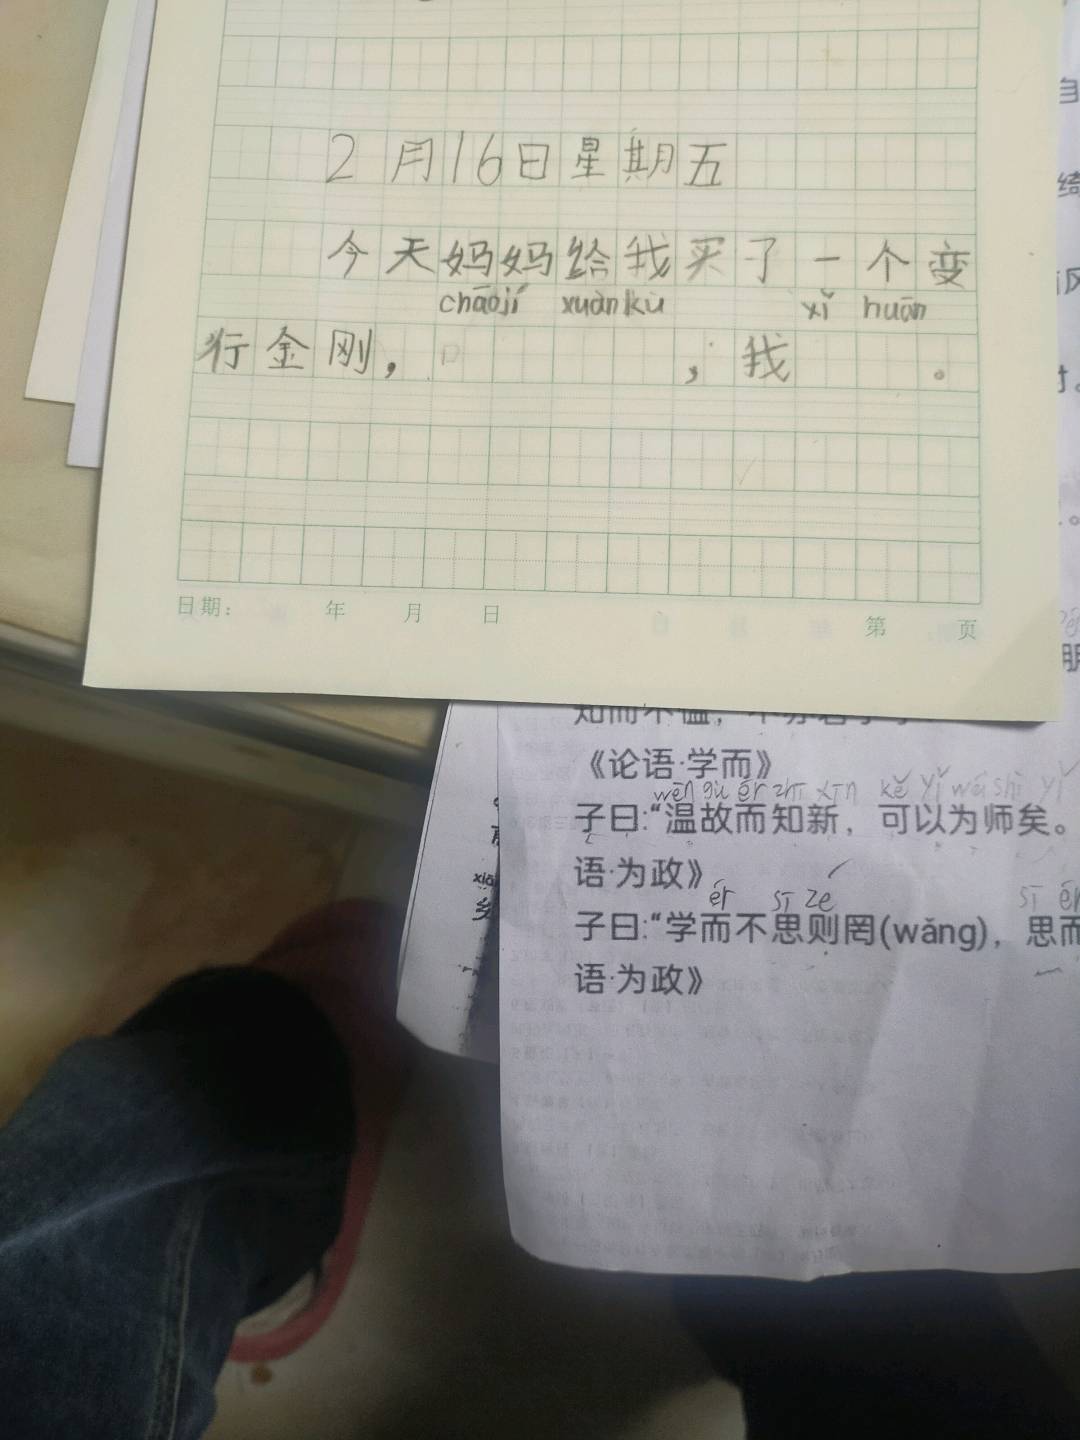 2月16日星期五
今天妈妈给我买了一个变
chāojí xuànkù xǐ huān
行金刚，，我。
日期： 年 月 日 第 页
《论语·学而》
wēn gù ér zhī xīn kě yǐ wéi shī yǐ
子曰:“温故而知新，可以为师矣。
语·为政》
ér sī zé sī ér
子曰:“学而不思则罔(wǎng)，思而
语·为政》
xiā
乡